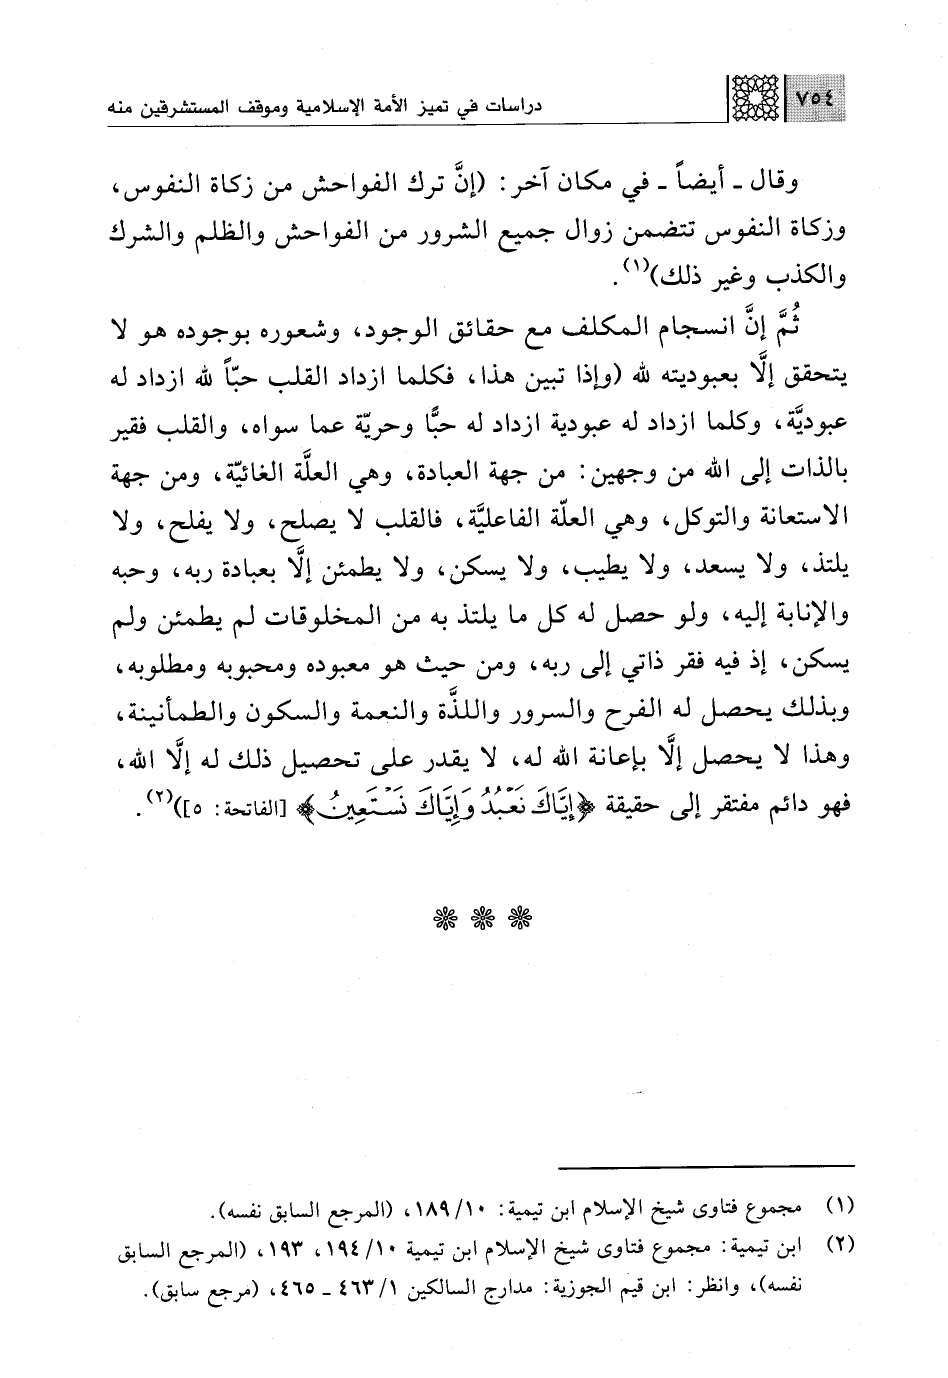 ٧٥٤
دراسات في تميز الأمة الإسلامية وموقف المستشرقين منه
وقال ـ أيضاً ـ في مكان آخر: (إنَّ ترك الفواحش من زكاة النفوس،
وزكاة النفوس تتضمن زوال جميع الشرور من الفواحش والظلم والشرك
والكذب وغير ذلك)(١).
ثُمَّ إنَّ انسجام المكلف مع حقائق الوجود، وشعوره بوجوده هو لا
يتحقق إلَّا بعبوديته لله (وإذا تبين هذا، فكلما ازداد القلب حبّاً لله ازداد له
عبوديَّة، وكلما ازداد له عبودية ازداد له حبًّا وحريّة عما سواه، والقلب فقير
بالذات إلى الله من وجهين: من جهة العبادة، وهي العلَّة الغائيّة، ومن جهة
الاستعانة والتوكل، وهي العلّة الفاعليَّة، فالقلب لا يصلح، ولا يفلح، ولا
يلتذ، ولا يسعد، ولا يطيب، ولا يسكن، ولا يطمئن إلَّا بعبادة ربه، وحبه
والإنابة إليه، ولو حصل له كل ما يلتذ به من المخلوقات لم يطمئن ولم
يسكن، إذ فيه فقر ذاتي إلى ربه، ومن حيث هو معبوده ومحبوبه ومطلوبه،
وبذلك يحصل له الفرح والسرور واللذَّة والنعمة والسكون والطمأنينة،
وهذا لا يحصل إلَّا بإعانة الله له، لا يقدر على تحصيل ذلك له إلَّا الله،
فهو دائم مفتقر إلى حقيقة ﴿إِيَّاكَ نَعْبُدُ وَإِيَّاكَ نَسْتَعِينُ﴾ [الفاتحة: ٥])(٢).
(١) مجموع فتاوى شيخ الإسلام ابن تيمية: ١٨٩/١٠، (المرجع السابق نفسه).
(٢) ابن تيمية: مجموع فتاوى شيخ الإسلام ابن تيمية ١٩٤/١٠، ١٩٣، (المرجع السابق
نفسه)، وانظر: ابن قيم الجوزية: مدارج السالكين ٤٦٣/١ ـ ٤٦٥، (مرجع سابق).